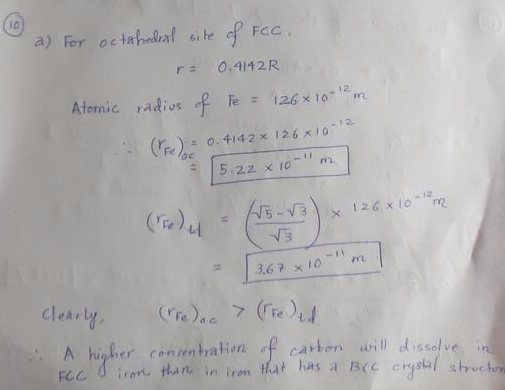 10
a) For octahedral site of FCC,
r = 0.4142R
Atomic radius of Fe = 126 × 10⁻¹² m
∴ (rFe)oc = 0.4142 × 126 × 10⁻¹²
= 5.22 × 10⁻¹¹ m
(rFe)td = ((√5 - √3)/√3) × 126 × 10⁻¹² m
= 3.67 × 10⁻¹¹ m
Clearly, (rFe)oc > (rFe)td
∴ A higher concentration of carbon will dissolve in
FCC iron than in iron that has a BCC crystal structure